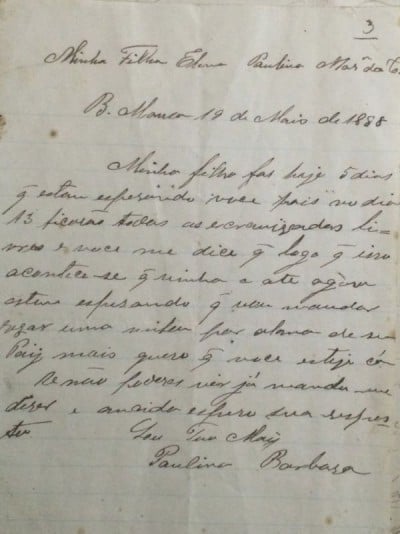 3
Minha Filha Elena Paulina
B. Mança 19 de Maio de 1888
Minha filha fas hoje 5 dias
q̃ estou esperando voce pois no dia
13 ficarão todas as escravizadas li-
vres e voce me dice q̃ logo q̃ isso
acontece-se q̃ vinha e ate agora
estou esperando q̃ vou mandar
rezar uma missa por alma de seu
Paiz mais quero q̃ voce esteje cá
Se não poderes vir já manda-me
dizer e anciada espero sua respos-
ta
Sou Tua Maỹ
Paulina Barbosa